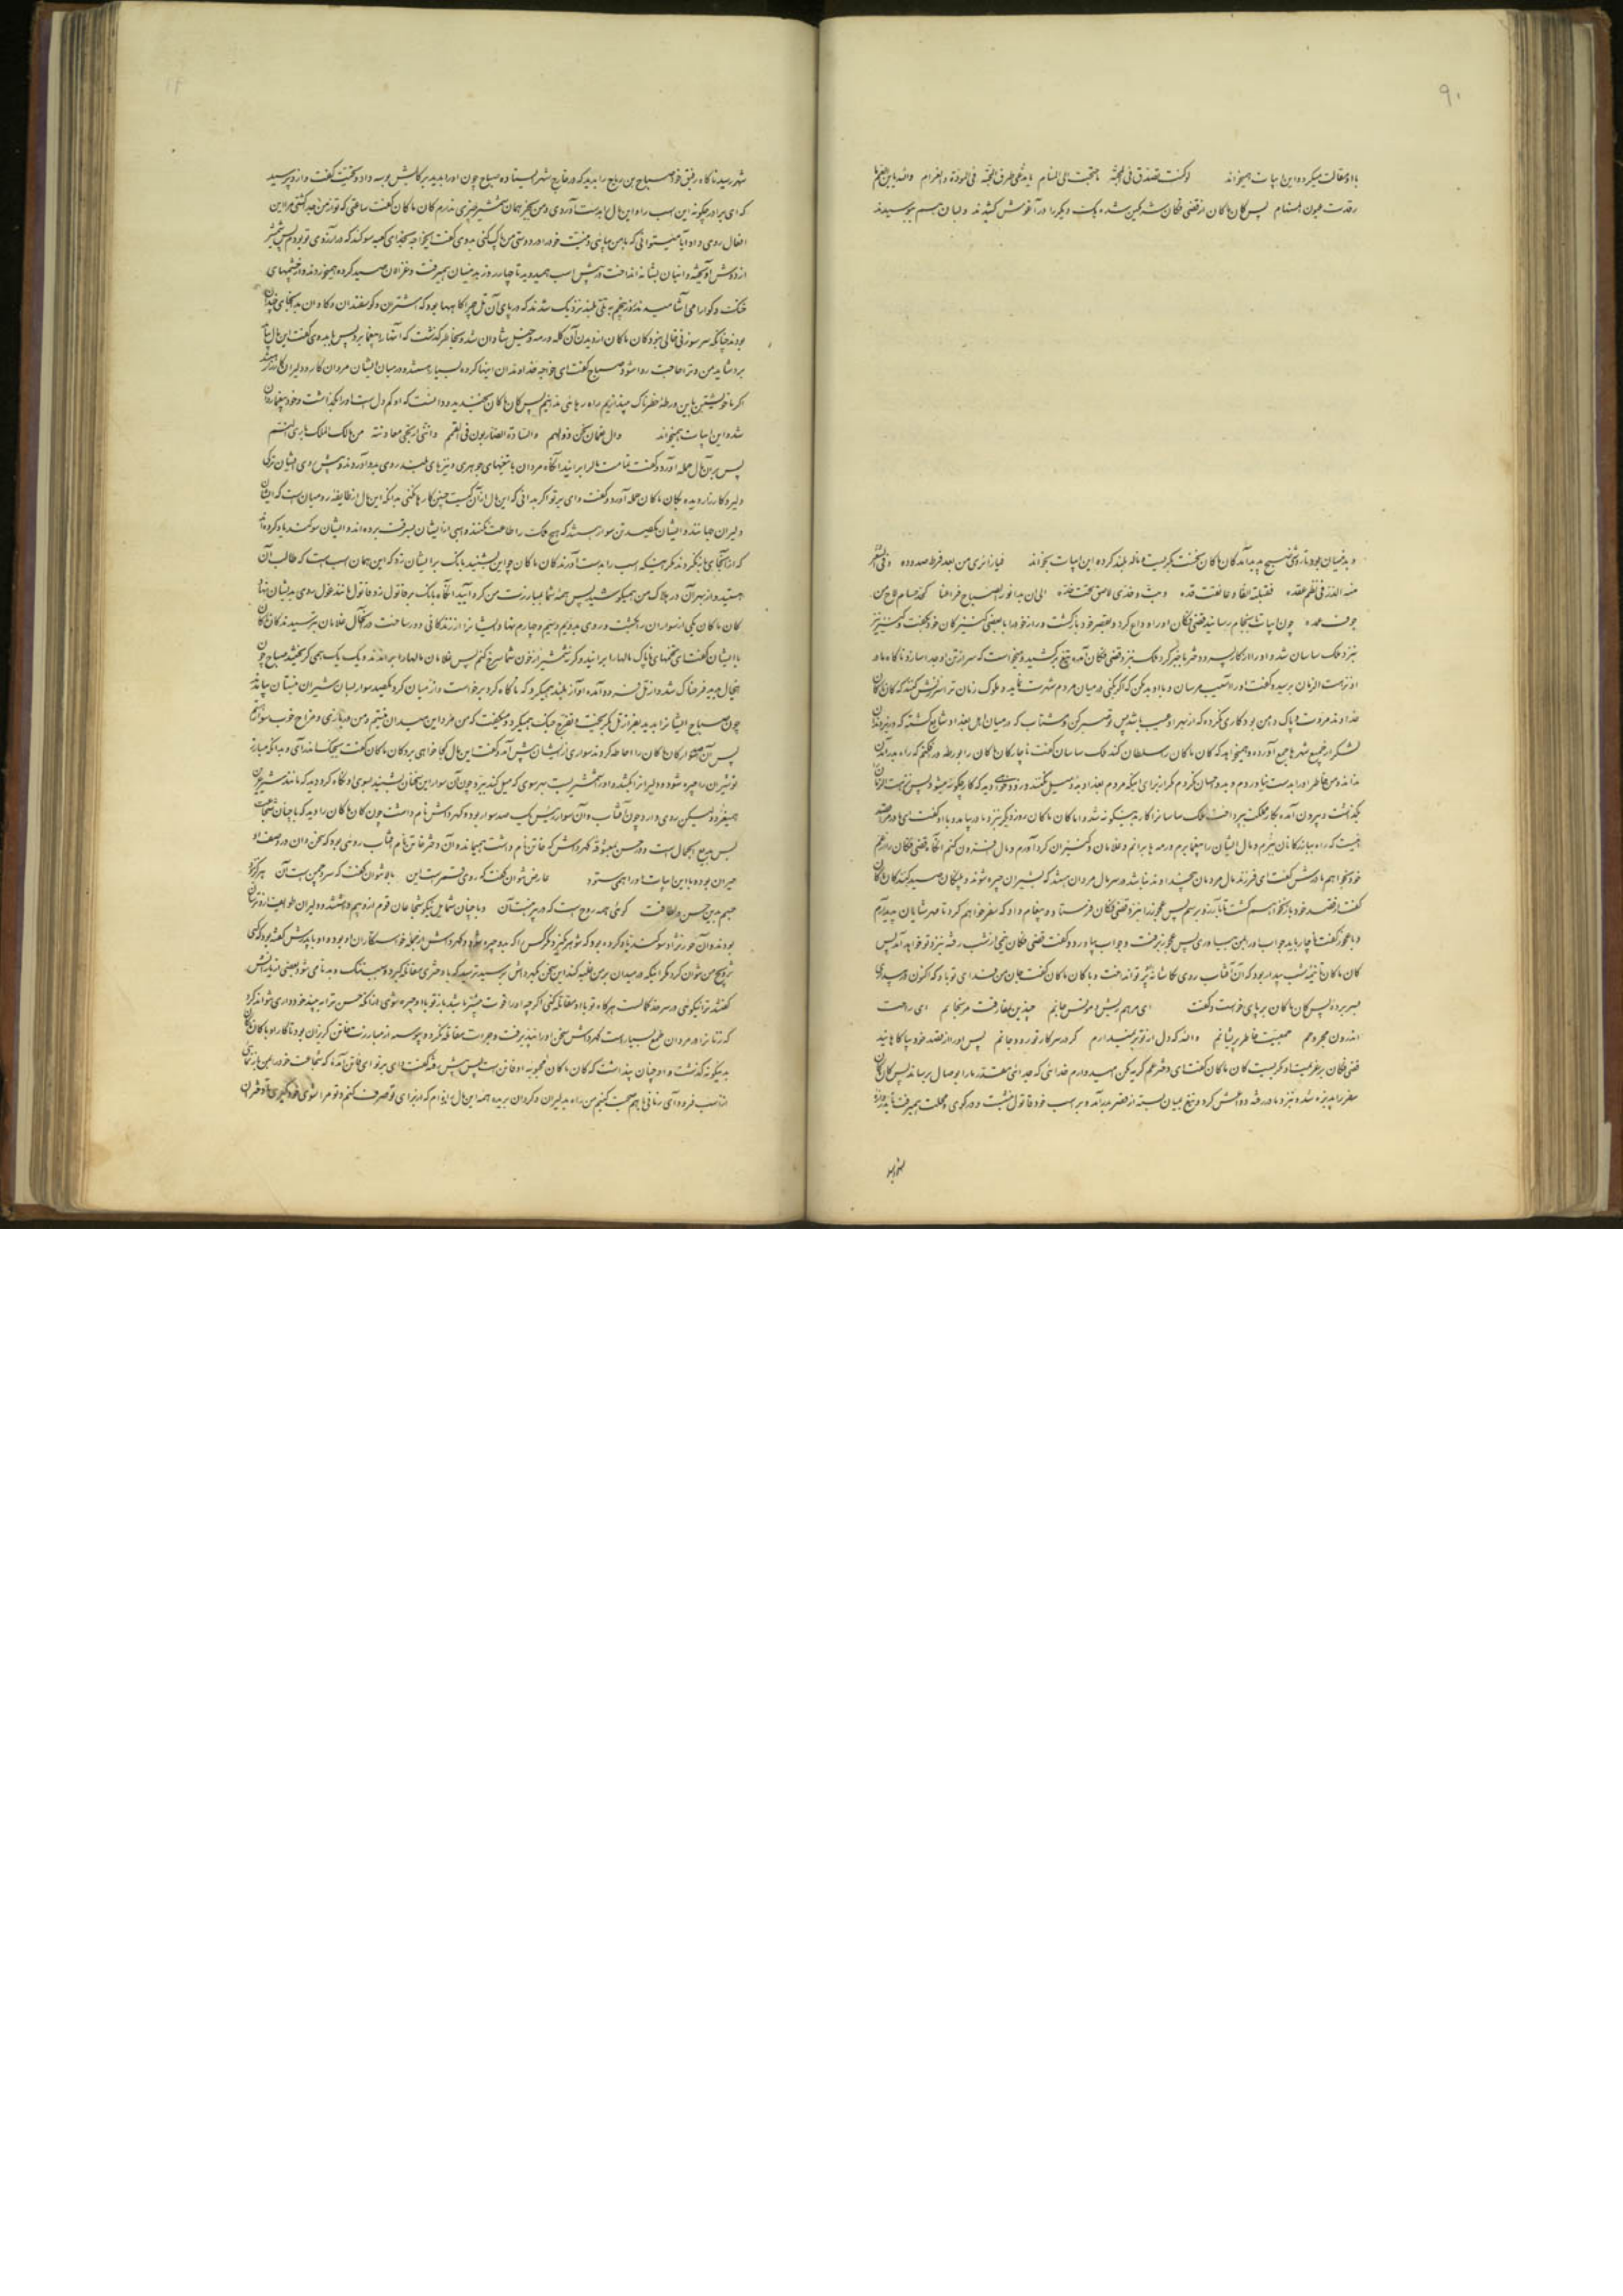 ۹۰
با او ملاطفت میکرد و این ابیات همیخواند لو کنت تصدق فی المحبة ما جنحت الی المنام یا مدعی طرق المحبة فی المودة و الغرام والله یا ابن العم ما
رقدت عیون المستهام پس کان ماکان از قضی فکان شرمگین شد و یک دیگر را در آغوش کشیدند و لبان هم ببوسیدند
و بدینسان بودند تا روشنی صبح پدید آمد کان ماکان سخت بگریست و ناله بلند کرده این ابیات بخواند فیا زائری من بعد فرط صدوده و فی الثغر
منه الدر فی نظم عقده فقبلته الفا و عانقت قده و بت و خدی لاصق تحت خده الی ان بدا نور الصباح فراعنا کحد حسام لاح من
جوف غمده چون ابیات بانجام رسانید قضی فکان او را وداع کرد و بقصر خود بازگشت و راز خود را با بعضی کنیزکان خود بگفت و کنیز نیز
نزد ملک ساسان شد و او را از کار پسر و دختر باخبر کرد ملک نزد قضی فکان آمده تیغ برکشید و میخواست که سر از تن او جدا سازد ناگاه مادر
او نزهت الزمان برسید و گفت او را آسیب مرسان و با او بد مکن که اگر بکنی در میان مردم شهرت نماید و ملوک زمان ترا سرزنش کنند که کان ماکان
خداوند مروت و پاک دامن بود کاری نکرده که از بهر او عیب باشد پس تو صبر کن و مشتاب که در میان اهل بغداد شایع گشته که
لشکر از جمیع شهرها جمع آورده و همیخواهد که کان ماکان را سلطان کند ملک ساسان گفت ناچار کان ماکان را بورطه در فکنم که راه بدر آمدن
نداند و من خاطر او را بدست نیاوردم و بدو احسان نکردم مگر از برای اینکه مردم بغداد بدو میل نکنند و زود خواهی دید که کار چگونه میشود پس نزهت الزمان
بگذشت و بیرون آمده بکار مملکت بپرداخت ملک ساسانرا کار بدینگونه شد و اما کان ماکان روز دیگر نزد مادر بیامد و با او گفت ای مادر مرا قصد
اینست که راه بیابانکانان بگیرم و مال ایشان را بیغما برم و رمه ها برانم و غلامان و کنیزان گرد آورم و مال افزون کنم آنگاه قضی فکان را از عم
خود بخواهم مادرش گفت ای فرزند مال مردمان بیخداوند نباشد و در سر مال مردان هستند که بشیران چیره شوند و پلنگان صید کنند کان ماکان
گفت از قصد خود باز نخواهم گشت تا بآرزو برسم پس عجوز را نزد قضی فکان فرستاد و پیغام داد که سفر خواهم کرد تا مهر شایان پدید آرم
و با عجوز گفت ناچار باید جواب او را بمن بیاوری پس عجوز برفت و جواب بیاورد و گفت قضی فکان نیمی از شب رفته نزد تو خواهد آمد پس
کان ماکان تا نیمه شب بیدار بود که آن آفتاب روی بکاشانه پرتو انداخت و با کان ماکان گفت جان من فدای تو باد که اکنون در بیداری
بسر برده پس کان ماکان بر پای خواست و گفت ای مرهم ریش و مونس جانم چندین بمفارقت مرنجانم ای راحت
اندرون مجروحم جمعیت خاطر پریشانم والله که دل از تو بر نمیدارم گر در سر کار تو رود جانم پس او را از قصد خود بیاگاهانید
قضی فکان بر خود بیت و بگریست کان ماکان گفت ای دختر عم گریه مکن امیدوارم خدائی که جدائی مقدر ما را بوصال برساند پس کان ماکان
سفر را پذیره شد و نزد مادر رفته وداعش کرد و تیغ بمیان بسته از قصر بدر آمد و بر اسب خود قاتول بنشست و در کوی مملکت بمیرفت تا بدروازه
شهر رسید ناگاه رفیق خود صباح بن رباح را بدید که در خارج شهر ایستاده صباح چون او را بدید بر رکابش بوسه داد و تحیت گفت و از او پرسید
که ای برادر چگونه این اسب را و این مال را بدست آوردی و من بجز همان شمشیر چیزی ندارم کان ماکان گفت ساعتی که تو از من جدا گشتی مرا این
اقبال روی داد آیا میتوانی که با من بیائی و نیت خود را در دوستی من پاک کنی بدوی گفت بخواجه بخدای کعبه سوگند که در آرزوی تو بودم پس شمشیر
از دوش آویخته و انبان بشانه انداخت و در پیش اسب همیدوید تا چهار روز بدینسان بمیرفت و غزالان صید کرده همیخوردند و از چشمهای
خنک و گوارا می آشامیدند روز پنجم به تلی بلند نزدیک شدند که در پای آن تل چراگاهها بود که اشتران و گوسفندان و گاوان بدانجای چنان
بودند چنانکه سر سوزنی خالی نبود کان ماکان از دیدن آن گله و رمه و خیل شادان شد و بخاطر گذشت که آنها را بیغما برد پس با بدوی گفت این مال باید
برد شاید من و ترا حاجت روا شود صباح گفت ای خواجه خداوندان اینها گروه بسیار هستند و در میان ایشان مردان کار و دلیران کارزار
اگر ما خویشتن باین ورطه خطرناک بیندازیم راه رهائی ندانیم پس کان ماکان بخندید و دانست که او کم دل است او را بگذاشت و خود بیغما روان
شد و این ابیات همیخواند و آل نعمان نحن ذو الهمم و السادة الضاربون فی القمم
پس بر آن مال حمله آورد و گفت تمامت مال را برانید آنگاه مردان با تیغهای جوهری و نیزهای بلند روی بدو آوردند و پیش روی ایشان ترکی
دلیر و کارزار دیده بکان ماکان حمله آورد و گفت وای بر تو اگر بدانی که این مال از آن کیست چنین کارها نکنی بدانکه این مال از طایفه رومیان است که ایشان
دلیران جهانند و ایشان یکصد تن سوار هستند که هیچ ملک را طاعت نکنند و اسبی از ایشان بسرقت برده اند و ایشان سوگند یاد کرده اند
که از اینجای باز نگردند مگر اینکه اسب را بدست آورند کان ماکان چو این بشنید بانگ بر ایشان زد که این همان اسب است که طالب آن
هستید و از بهر آن در هلاک من همیکوشید پس همه شما بمبارزت من گرد آیید آنگاه بانگ بر قاتول زد و قاتول مانند غول روی بدیشان نهاد
کان ماکان یکی از سواران را بکشت و روی بدویم و سیم و چارم نهاد و ایشانرا از زندگانی دور ساخت در آنحال غلامان بترسیدند کان ماکان
با ایشان گفت ای تخمهای ناپاک مالها را برانید و گرنه شمشیر از خون شما سرخ کنم پس غلامان مالها را براندند و یک یک همی گریختند صباح چون
اینحال بدید فرحناک شد و از تل فرود آمده آواز بلند همیکرد که ناگاه گرد برخواست و از میان گرد یکصد سوار بسان شیران غضبان بیامدند
چون صباح ایشانرا بدید بفراز تل بگریخت و تفرج جنگ همیکرد و میگفت که من مرد این میدان نیستم و من در بازی و مزاح خوب سوارم
پس آن صد سوار کان ماکان را احاطه کردند سواری از ایشان پیش آمد و گفت این مال کجا خواهی برد کان ماکان گفت بجنگ اندر آی و بدانکه مبارز
تو شیران را چیره شود و دلیرانرا بکشد و او را شمشیریست بهر سوی که میل کند ببرد چون آن سوار این سخنان بشنید بسوی او نگاه کرد دید که مانند شیر ژیان
همیغرد ولیکن روی دارد چون آفتاب و آن سوار رئیس یک صد سوار بود و کهرداش نام داشت چون کان ماکان را دید که با چنان شجاعت
بس بدیع الجمال است و در حسن بمعشوقه کهرداش که فاتن نام داشت همیماند و آن دختر فاتن نام آفتاب روئی بود که سخن دان در وصف او
حیران بوده با این ابیات او را همی ستود عارض نتوان گفت که روی قمر است این بالا نتوان گفت که سرو چمن است آن هرگز نبود
جسم بدین حسن و لطافت گوئی همه روح است که در پیرهنست آن و با چنان شمایل نیکو شجاعان قوم از او بیم داشتند و دلیران طوایف از او ترسان
بودند و آن حور نژاد سوگند یاد کرده بود که شوهر نگیرد مگر کسی را که بدو چیره شود و کهرداش از جمله خواستگاران او بود و او با پدرش گفته بود که کسی
تزویج من نتوان کرد مگر اینکه در میدان بر من غلبه کند این سخن بکهرداش برسید ترسید که با دختری مقاتله گیرد و سبب ننگ و بدنامی شود بعضی از یارانش
گفتند ترا نیکوئی در سر حد کمالست هرگاه تو با او مقاتله کنی اگر چه او را قوت بیشتر باشد باز تو با او چیره شوی از آنکه حسن ترا ببیند خودداری نتواند کرد
که زنانرا در مردان طمع بسیار است کهرداش سخن او را نپذیرفت و جرات مقاتله نکرد و پیوسته از مبارزت فاتن گریزان بود تا کار او با کان ماکان
بدینگونه گذشت و او چنان پنداشت که کان ماکان محبوبه او فاتن است پس پیش رفته گفت وای بر تو ای فاتن آمده که شجاعت خود را بمن باز نمائی
از اسب فرود آی زمانی با هم صحبت کنیم من راه بدلیران و گردان بریده همه این مال را از برای تو تصرف کنم و تو مرا بشوی خود گیری تا دختران